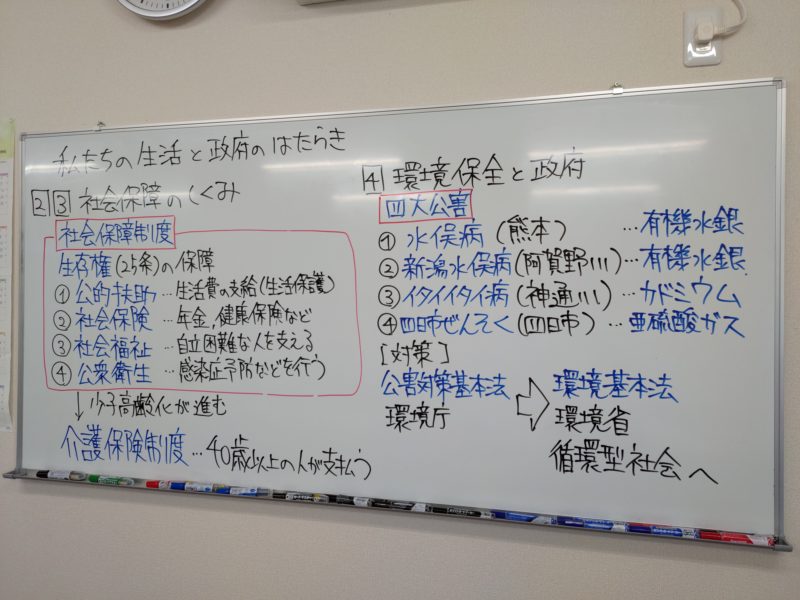 私たちの生活と政府のはたらき
2 3 社会保障のしくみ
社会保障制度
生存権(25条)の保障
① 公的扶助…生活費の支給(生活保護)
② 社会保険…年金,健康保険など
③ 社会福祉…自立困難な人を支える
④ 公衆衛生…感染症予防などを行う
↓少子高齢化が進む
介護保険制度…40歳以上の人が支払う
4 環境保全と政府
四大公害
① 水俣病(熊本)…有機水銀
② 新潟水俣病(阿賀野川)…有機水銀
③ イタイイタイ病(神通川)…カドミウム
④ 四日市ぜんそく(四日市)…亜硫酸ガス
[対策]
公害対策基本法 ⇨ 環境基本法
環境庁 環境省
循環型社会へ